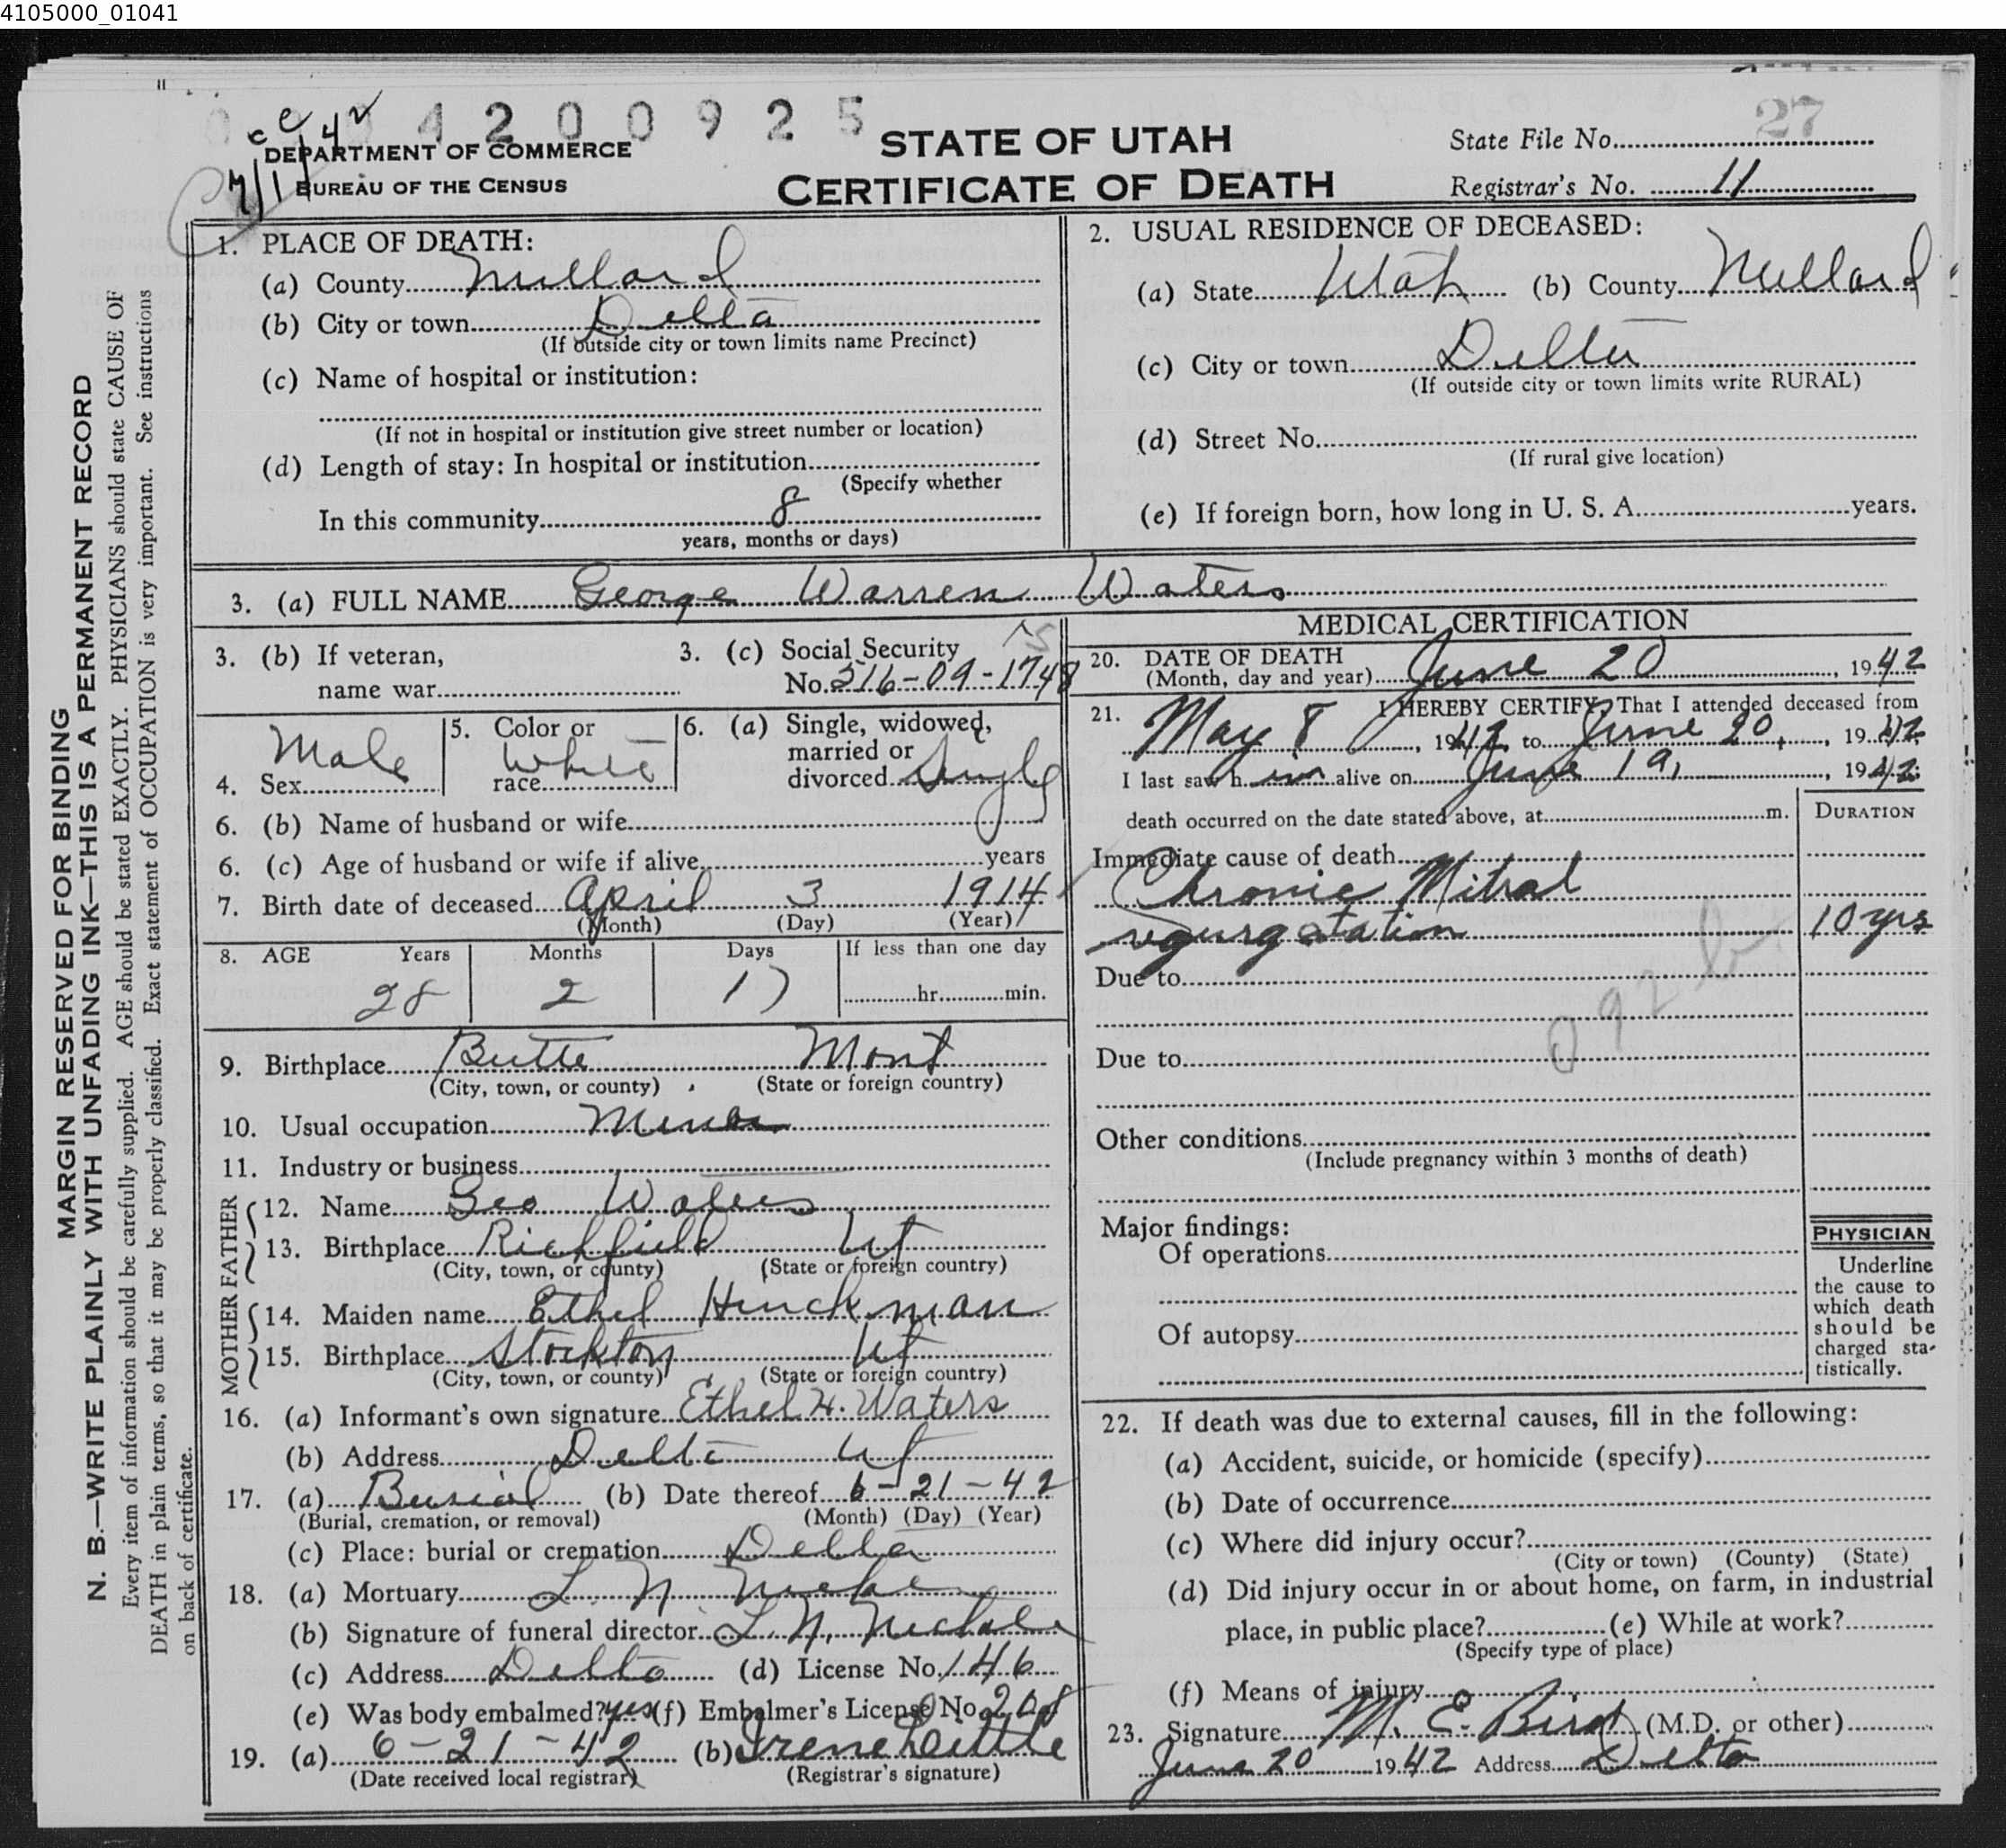 4105000_01041
4200925
7/1/42
DEPARTMENT OF COMMERCE
BUREAU OF THE CENSUS
STATE OF UTAH
CERTIFICATE OF DEATH
State File No. 27
Registrar's No. 11
MARGIN RESERVED FOR BINDING
N. B.—WRITE PLAINLY WITH UNFADING INK—THIS IS A PERMANENT RECORD
Every item of information should be carefully supplied. AGE should be stated EXACTLY. PHYSICIANS should state CAUSE OF
DEATH in plain terms, so that it may be properly classified. Exact statement of OCCUPATION is very important. See instructions
on back of certificate.
1. PLACE OF DEATH:
(a) County Millard
(b) City or town Delta
(If outside city or town limits name Precinct)
(c) Name of hospital or institution:
(If not in hospital or institution give street number or location)
(d) Length of stay: In hospital or institution
(Specify whether
In this community 8
years, months or days)
2. USUAL RESIDENCE OF DECEASED:
(a) State Utah (b) County Millard
(c) City or town Delta
(If outside city or town limits write RURAL)
(d) Street No.
(If rural give location)
(e) If foreign born, how long in U. S. A. years.
3. (a) FULL NAME George Warren Waters
3. (b) If veteran,
name war
3. (c) Social Security
No. 516-09-1748
4. Sex Male
5. Color or
race White
6. (a) Single, widowed,
married or
divorced Single
6. (b) Name of husband or wife
6. (c) Age of husband or wife if alive years
7. Birth date of deceased April 3 1914
(Month) (Day) (Year)
8. AGE Years Months Days If less than one day
28 2 17 hr. min.
9. Birthplace Butte Mont
(City, town, or county) (State or foreign country)
10. Usual occupation Miner
11. Industry or business
FATHER
12. Name Geo Waters
13. Birthplace Richfield Ut
(City, town, or county) (State or foreign country)
MOTHER
14. Maiden name Ethel Hinckman
15. Birthplace Stockton Ut
(City, town, or county) (State or foreign country)
16. (a) Informant's own signature Ethel H. Waters
(b) Address Delta Ut
17. (a) Burial (b) Date thereof 6-21-42
(Burial, cremation, or removal) (Month) (Day) (Year)
(c) Place: burial or cremation Delta
18. (a) Mortuary L. N.
(b) Signature of funeral director L. N.
(c) Address Delta (d) License No. 146
(e) Was body embalmed? yes (f) Embalmer's License No. 208
19. (a) 6-21-42 (b) Irene Little
(Date received local registrar) (Registrar's signature)
MEDICAL CERTIFICATION
20. DATE OF DEATH
(Month, day and year) June 20, 1942
21. I HEREBY CERTIFY, That I attended deceased from
May 8, 1942 to June 20, 1942
I last saw him alive on June 19, 1942
death occurred on the date stated above, at m.
DURATION
Immediate cause of death
Chronic Mitral
regurgatation 10 yrs
Due to
092 b
Due to
Other conditions
(Include pregnancy within 3 months of death)
Major findings:
Of operations
Of autopsy
PHYSICIAN
Underline
the cause to
which death
should be
charged sta-
tistically.
22. If death was due to external causes, fill in the following:
(a) Accident, suicide, or homicide (specify)
(b) Date of occurrence
(c) Where did injury occur?
(City or town) (County) (State)
(d) Did injury occur in or about home, on farm, in industrial
place, in public place? (e) While at work?
(Specify type of place)
(f) Means of injury
23. Signature M. E. Bird (M.D. or other)
June 20 1942 Address Delta